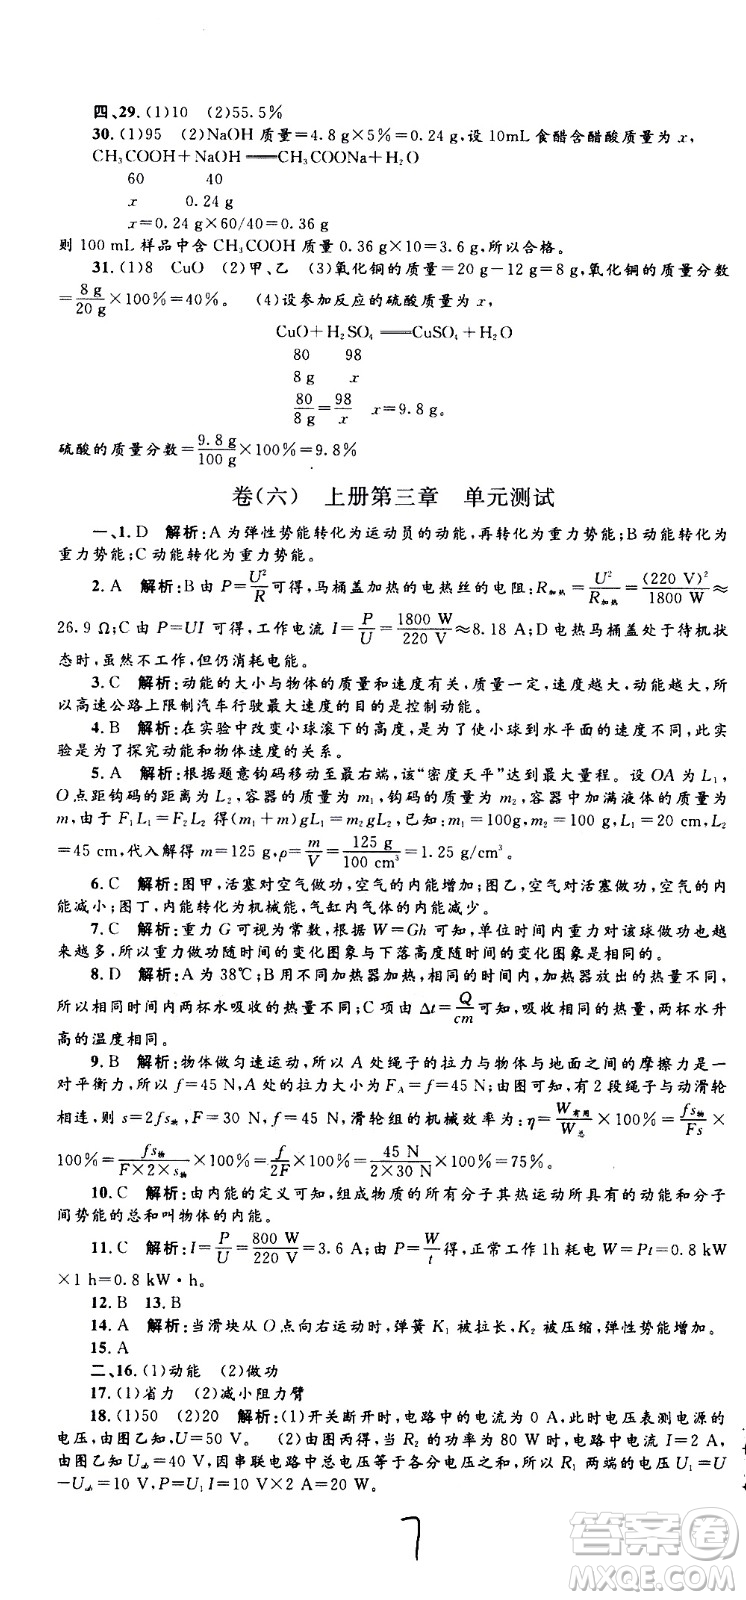 四、29.(1)10 (2)55.5%
30.(1)95 (2)NaOH 质量=4.8 g×5%=0.24 g,设 10mL 食醋含醋酸质量为 x,
CH₃COOH+NaOH══CH₃COONa+H₂O
60 40
x 0.24 g
x=0.24 g×60/40=0.36 g
则 100 mL 样品中含 CH₃COOH 质量 0.36 g×10=3.6 g,所以合格。
31.(1)8 CuO (2)甲、乙 (3)氧化铜的质量=20 g-12 g=8 g,氧化铜的质量分数
=8 g/20 g×100%=40%。 (4)设参加反应的硫酸质量为 x,
CuO+H₂SO₄══CuSO₄+H₂O
80 98
8 g x
80/8 g=98/x x=9.8 g。
硫酸的质量分数=9.8 g/100 g×100%=9.8%
卷(六) 上册第三章 单元测试
一、1.D 解析:A 为弹性势能转化为运动员的动能,再转化为重力势能;B 动能转化为
重力势能;C 动能转化为重力势能。
2.A 解析:B由 P=U²/R可得,马桶盖加热的电热丝的电阻:R加热=U²/R加热=(220 V)²/1800 W≈
26.9 Ω;C 由 P=UI 可得,工作电流 I=P/U=1800 W/220 V≈8.18 A;D 电热马桶盖处于待机状
态时,虽然不工作,但仍消耗电能。
3.C 解析:动能的大小与物体的质量和速度有关,质量一定,速度越大,动能越大,所
以高速公路上限制汽车行驶最大速度的目的是控制动能。
4.B 解析:在实验中改变小球滚下的高度,是为了使小球到水平面的速度不同,此实
验是为了探究动能和物体速度的关系。
5.A 解析:根据题意钩码移动至最右端,该“密度天平”达到最大量程。设 OA 为 L₁,
O 点距钩码的距离为 L₂,容器的质量为 m₁,钩码的质量为 m₂,容器中加满液体的质量为
m,由于 F₁L₁=F₂L₂ 得(m₁+m)gL₁=m₂gL₂,已知:m₁=100g,m₂=100 g,L₁=20 cm,L₂
=45 cm,代入解得 m=125 g,ρ=m/V=125 g/100 cm³=1.25 g/cm³。
6.C 解析:图甲,活塞对空气做功,空气的内能增加;图乙,空气对活塞做功,空气的内
能减小;图丁,内能转化为机械能,气缸内气体的内能减少。
7.C 解析:重力 G 可视为常数,根据 W=Gh 可知,单位时间内重力对该球做功也越
来越多,所以重力做功随时间的变化图象与下落高度随时间的变化图象应相同。
8.D 解析:A 为 38℃;B 用不同加热器加热,相同的时间内,加热器放出的热量不同,
所以相同时间内两杯水吸收的热量不同;C 项由 Δt=Q/cm可知,吸收相同的热量,两杯水升
高的温度相同。
9.B 解析:物体做匀速运动,所以 A 处绳子的拉力与物体与地面之间的摩擦力是一
对平衡力,所以 f=45 N,A 处的拉力大小为 FA=f=45 N;由图可知,有 2 段绳子与动滑轮
相连,则 s=2fs物,F=30 N,滑轮组的机械效率为:η=W有用/W总×100%=fs物/Fs×
100%=fs物/F×2×s物×100%=f/2F×100%=45 N/2×30 N×100%=75%。
10.C 解析:由内能的定义可知,组成物质的所有分子其热运动所具有的动能和分子
间势能的总和叫物体的内能。
11.C 解析:I=P/U=800 W/220 V=3.6 A,由 P=W/t得,正常工作 1h 耗电 W=Pt=0.8 kW
×1 h=0.8 kW·h。
12.B 13.B
14.A 解析:当滑块从 O 点向右运动时,弹簧 K₁ 被拉长,K₂ 被压缩,弹性势能增加。
15.A
二、16.(1)动能 (2)做功
17.(1)省力 (2)减小阻力臂
18.(1)50 (2)20 解析:(1)开关断开时,电路中的电流为 0 A,此时电压表测电源的
电压,由图乙知,U=50 V。 (2)由图丙得,当 R₂ 的功率为 80 W 时,电路中电流 I=2 A,
由图乙知 U=40 V,因串联电路中总电压等于各分电压之和,所以 R₁ 两端的电压 U₁=U
-U=10 V,所以 P=U₁I=10 V×2 A=20 W。
7
答案卷
MXQE.COM